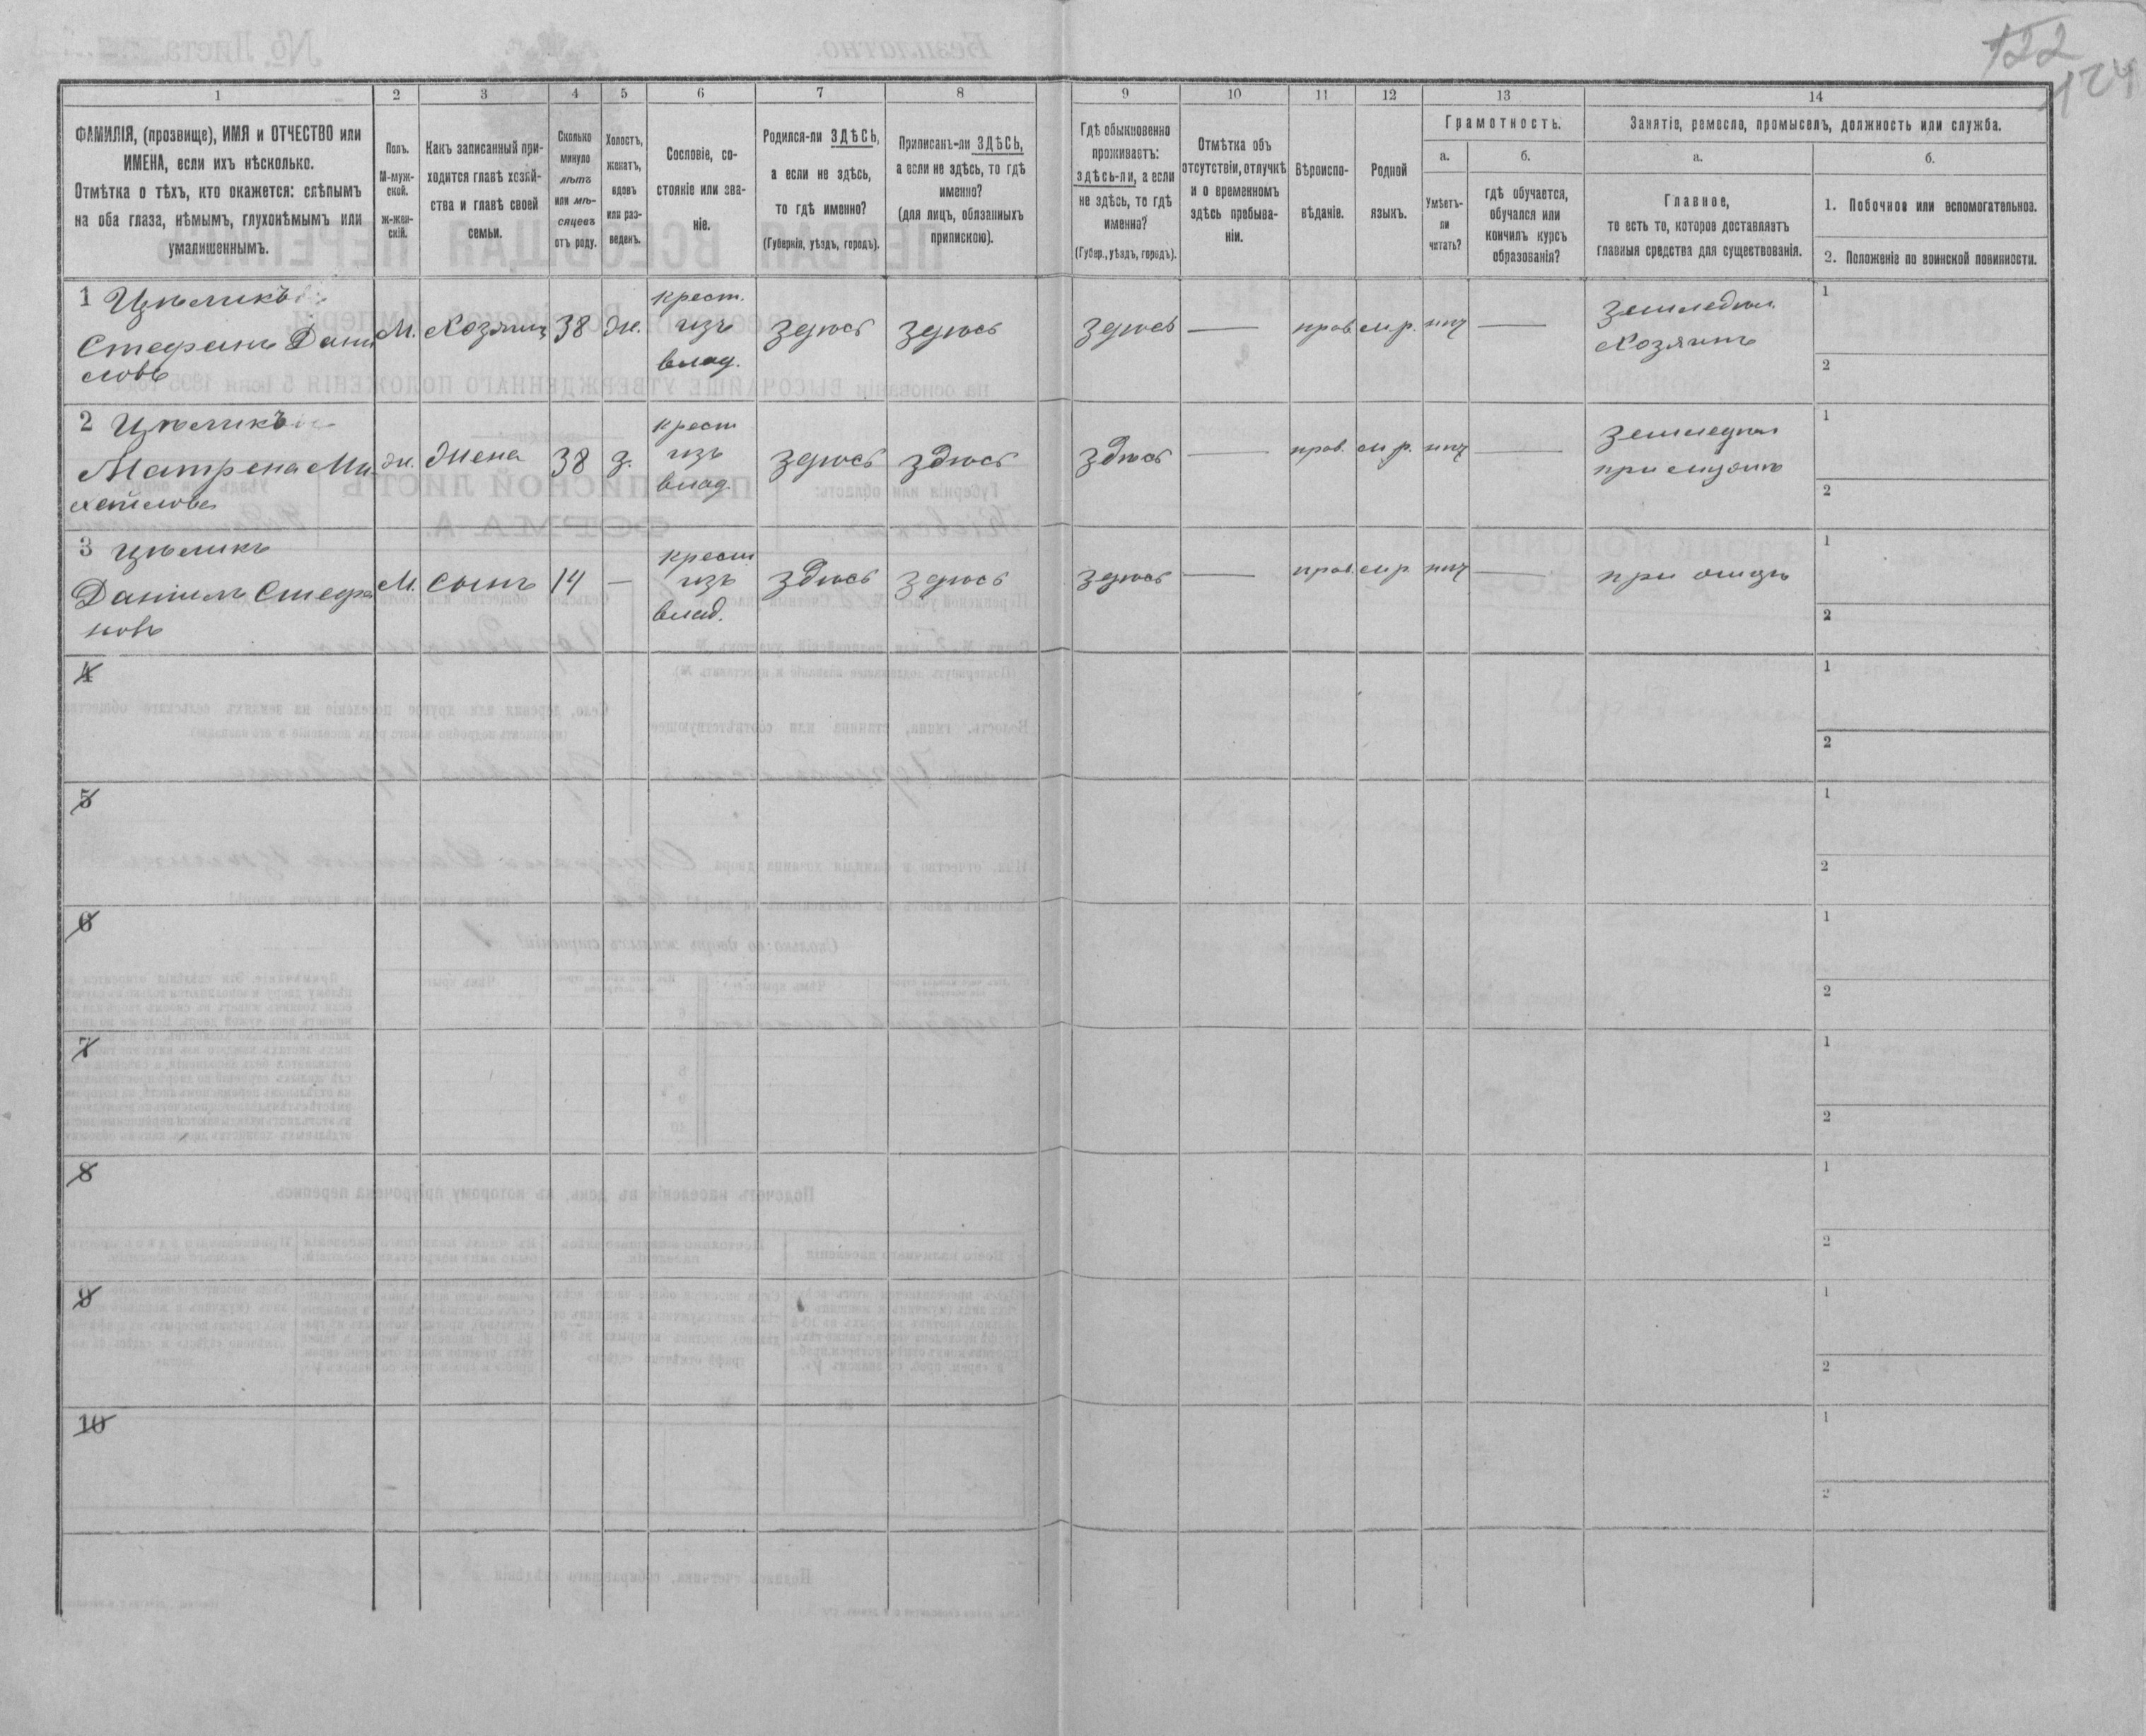 122
124
1 2 3 4 5 6 7 8 9 10 11 12 13 14
ФАМИЛІЯ, (прозвище), ИМЯ и ОТЧЕСТВО или
ИМЕНА, если ихъ нѣсколько.
Отмѣтка о тѣхъ, кто окажется: слѣпымъ
на оба глаза, нѣмымъ, глухонѣмымъ или
умалишеннымъ.
Полъ.
М-муж-
ской.
Ж-жен-
скій.
Какъ записанный при-
ходится главѣ хозяй-
ства и главѣ своей
семьи.
Сколько
минуло
лѣтъ
или мѣ-
сяцевъ
отъ роду.
Холостъ,
женатъ,
вдовъ
или раз-
веденъ.
Сословіе, со-
стояніе или зва-
ніе.
Родился-ли ЗДѢСЬ,
а если не здѣсь,
то гдѣ именно?
(Губернія, уѣздъ, городъ).
Приписанъ-ли ЗДѢСЬ,
а если не здѣсь, то гдѣ
именно?
(для лицъ, обязанныхъ
припискою).
Гдѣ обыкновенно
проживаетъ:
здѣсь-ли, а если
не здѣсь, то гдѣ
именно?
(Губер., уѣздъ, городъ).
Отмѣтка объ
отсутствіи, отлучкѣ
и о временномъ
здѣсь пребыва-
ніи.
Вѣроиспо-
вѣданіе.
Родной
языкъ.
Грамотность.
а.
Умѣетъ-
ли
читать?
б.
гдѣ обучается,
обучался или
кончилъ курсъ
образованія?
Занятіе, ремесло, промыселъ, должность или служба.
а.
Главное,
то есть то, которое доставляетъ
главныя средства для существованія.
б.
1. Побочное или вспомогательное.
2. Положеніе по воинской повинности.
1 Цѣликъ
Стефанъ Дани
ловъ
М. Хозяинъ 38 ж.
крест.
изъ
влад.
здѣсь здѣсь здѣсь — прав. м.р. нѣт —
земледѣл.
Хозяинъ
1
2
2 Цѣликъ
Матрена Ми
хайлова
ж. жена 38 з.
крест
изъ
влад.
здѣсь здѣсь здѣсь — прав. м.р. нѣт —
земледѣл
при мужѣ
1
2
3 Цѣликъ
Даніилъ Стефа
новъ
М. сынъ 14 —
крест
изъ
влад.
здѣсь здѣсь здѣсь — прав. м.р. нѣт —
при отцѣ
1
2
4
1
2
5
1
2
6
1
2
7
1
2
8
1
2
9
1
2
10
1
2